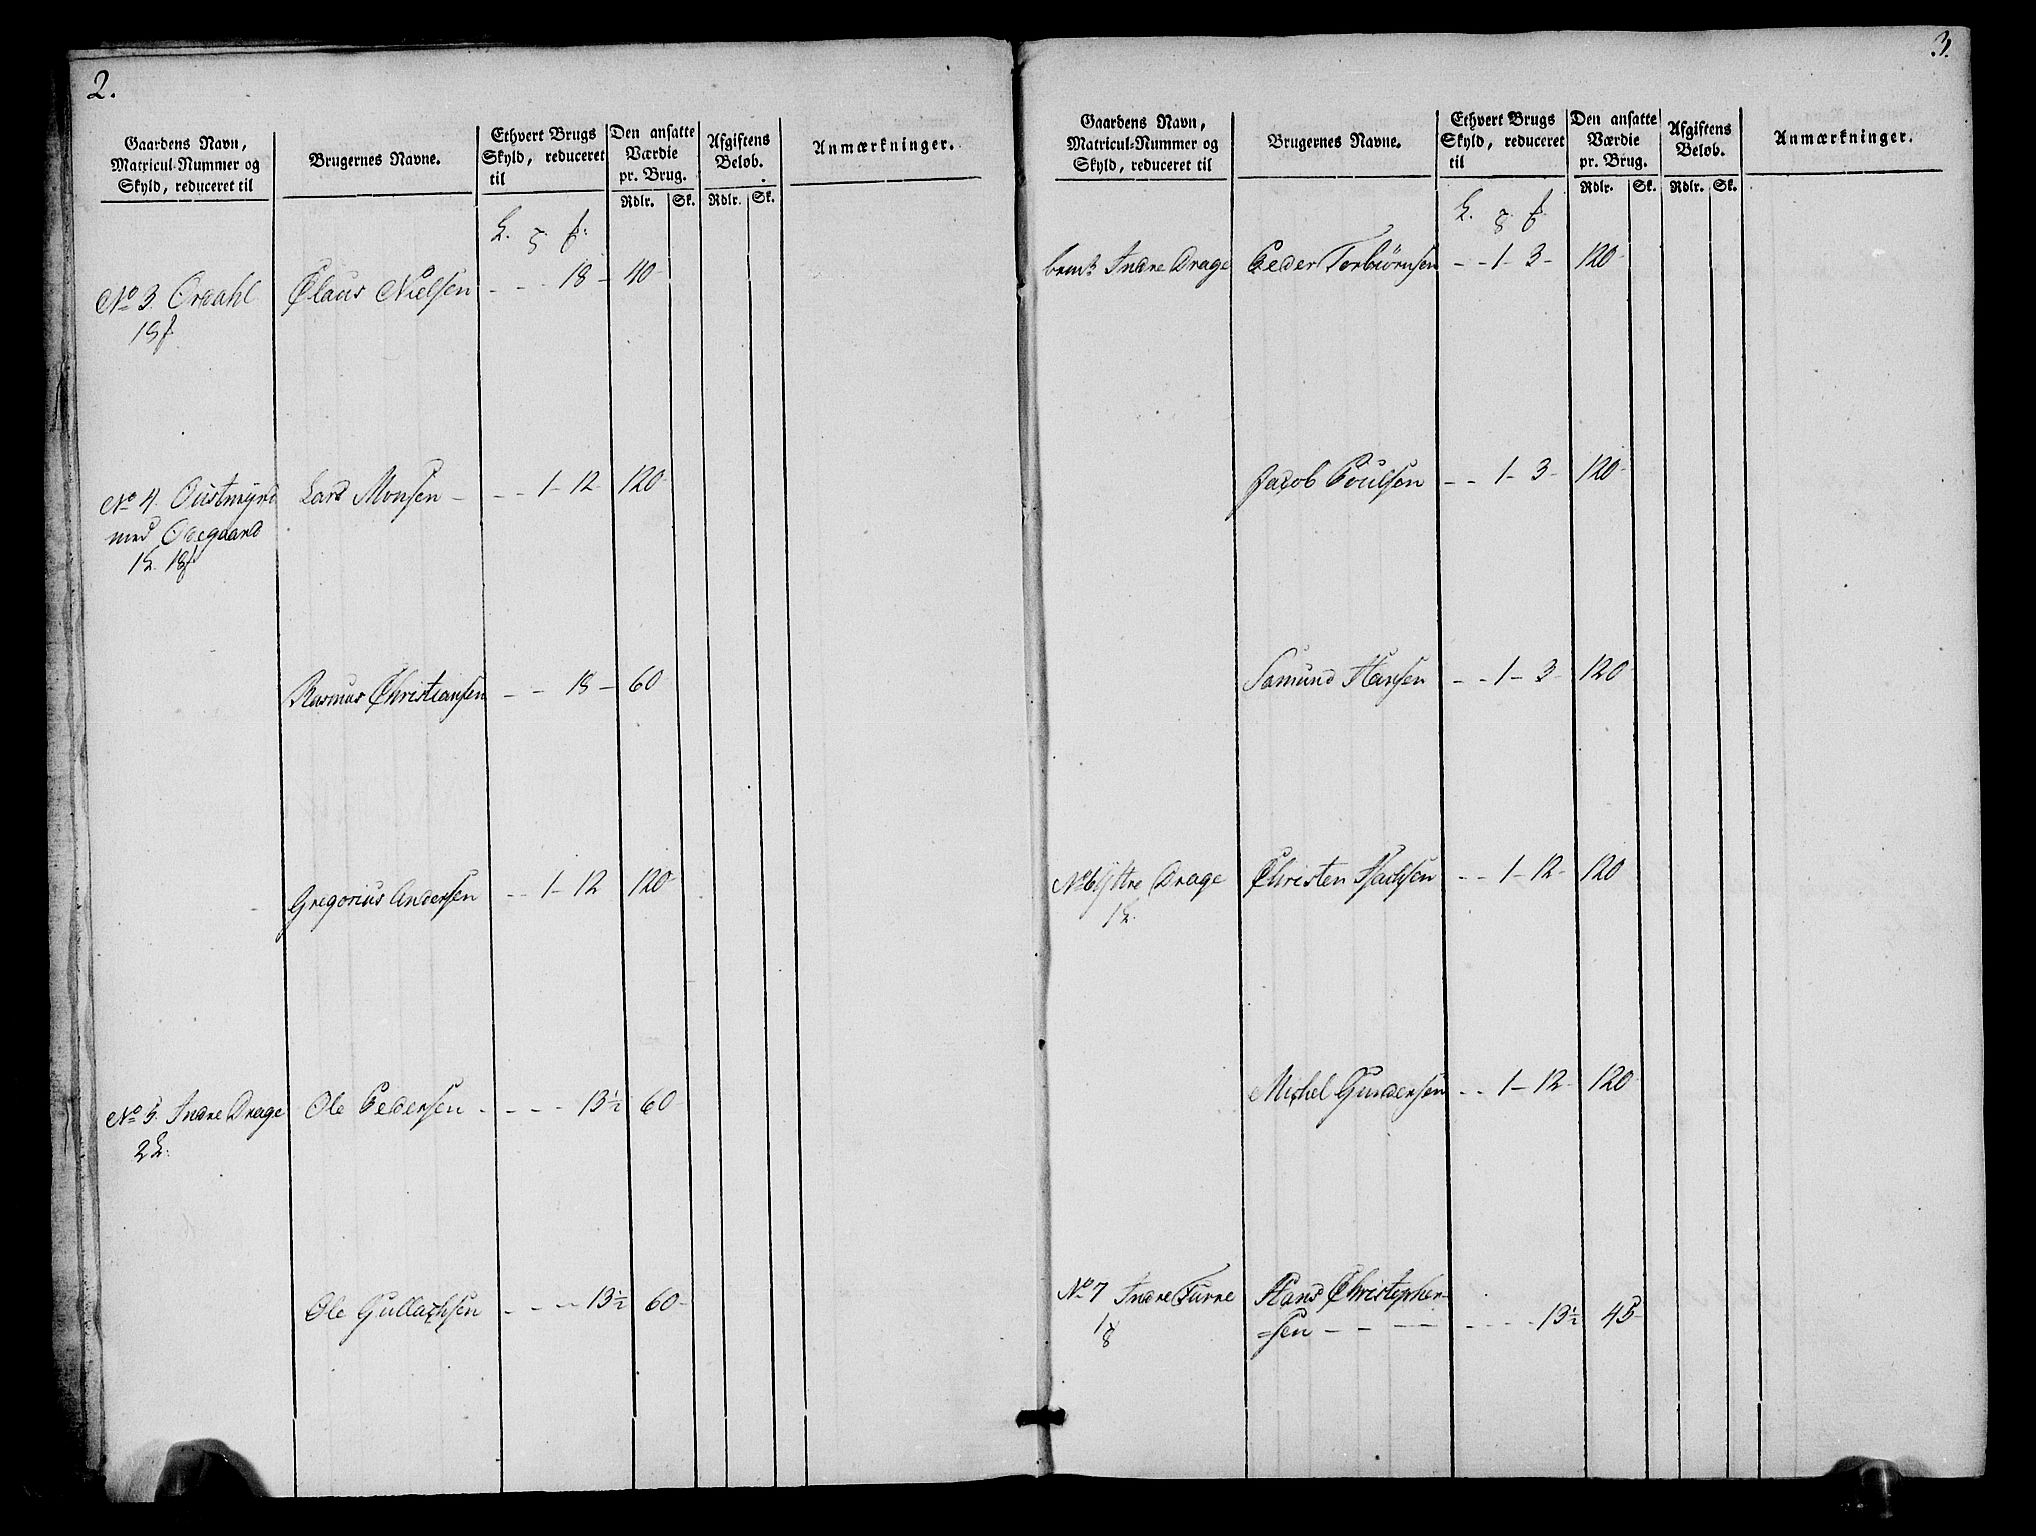 2.
Gaardens Navn,
Matricul-Nummer og
Skyld, reduceret til
Brugernes Navne.
Ethvert Brugs
Skyld, reduceret
til
Den ansatte
Værdie
pr. Brug.
Rdlr. Sk.
Afgiftens
Beløb.
Rdlr. Sk.
Anmærkninger.
No 3. Ordahl Claus Nielsen - - - 18 - 40
18
No 4. Lars Monsen - - - 1 - 12 120
med Ödegaard
1 18
Rasmus Christiansen - - 18 - 60
Gregorius Andersen - - 1 - 12 120
No 5. Indre Drage Ole Pedersen - - - - 13½ 60
2
Ole Gullachsen - - - 13½ 60
3.
Gaardens Navn,
Matricul-Nummer og
Skyld, reduceret til
Brugernes Navne.
Ethvert Brugs
Skyld, reduceret
til
Den ansatte
Værdie
pr. Brug.
Rdlr. Sk.
Afgiftens
Beløb.
Rdlr. Sk.
Anmærkninger.
Indre Drage Peder Torbiörnsen - - 1 - 3 - 120
Jacob Poulsen - - 1 - 3 - 120
Samund Hansen - - 1 - 3 120
No 6 Yttre Drage Christen - - 1 - 12 - 120
1
Michel Gundersen - - 1 - 12 120
No 7 Indre Furre Hans Christopher-
=sen - - - - - - - - 13½ 45